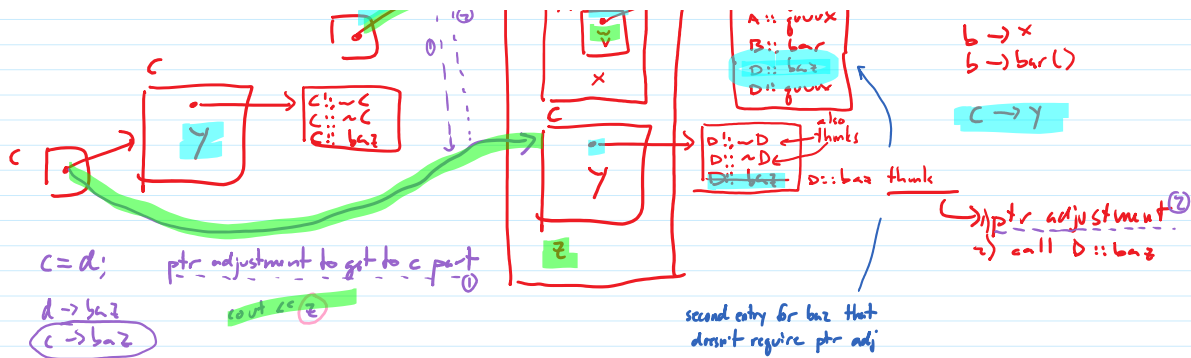 ②
①
v
X
A:: quux
B:: bar
D:: baz
D:: quux
b → x
b → bar()
c → y
C
C
y
C!:~C
C::~C
C:: baz
C
y
z
also thunks
D!:~D
D::~D
D:: baz
D::baz thunk
1) ptr adjustment ②
2) call D::baz
c = d;
ptr adjustment to get to c part
①
d → baz
cout << z
c → baz
second entry for baz that
doesn't require ptr adj